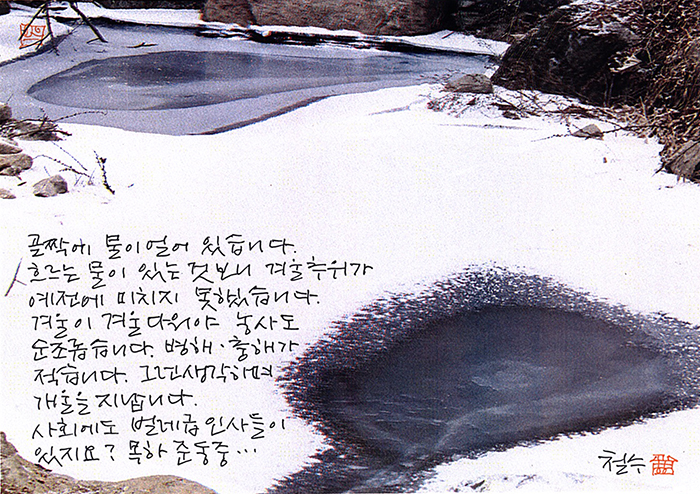 골짝에 물이 얼어 있습니다.
흐르는 물이 있는 것 보니 겨울추위가
예전에 미치지 못하겠습니다.
겨울이 겨울다워야 농사도
순조롭습니다. 병해·충해가
적습니다. 그런 생각하며
개울을 지납니다.
사회에도 벌레급 인사들이
있지요? 목하 준동중…
철수